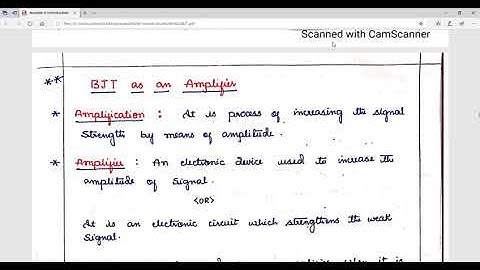 Scanned with CamScanner
** BJT as an Amplifier
* Amplification : It is process of increasing the signal
strength by means of amplitude.
* Amplifier : An electronic device used to increase the
amplitude of signal.
<OR>
It is an electronic circuit which strengthens the weak
signal.